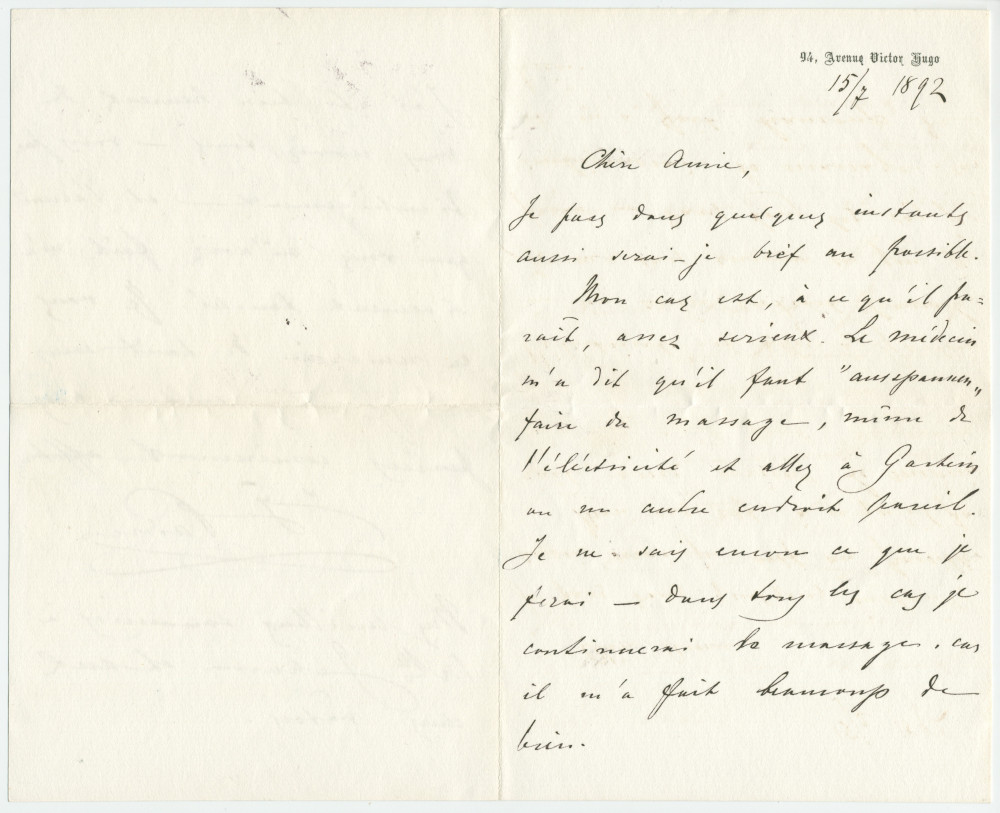 94, Avenue Victor Hugo
15/7 1892
Chère Annie,
Je pars dans quelques instants
aussi serai-je bref au possible.
Mon cas est, à ce qu'il pa=
raît, assez serieux. Le médecin
m'a dit qu'il faut "ausspannen"
faire du massage, même de
l'éléctricité et aller à Gastein
ou un autre endroit pareil.
Je ne sais encore ce que je
ferai — dans tous les cas je
continuerai le massage, car
il m'a fait beaucoup de
bien.